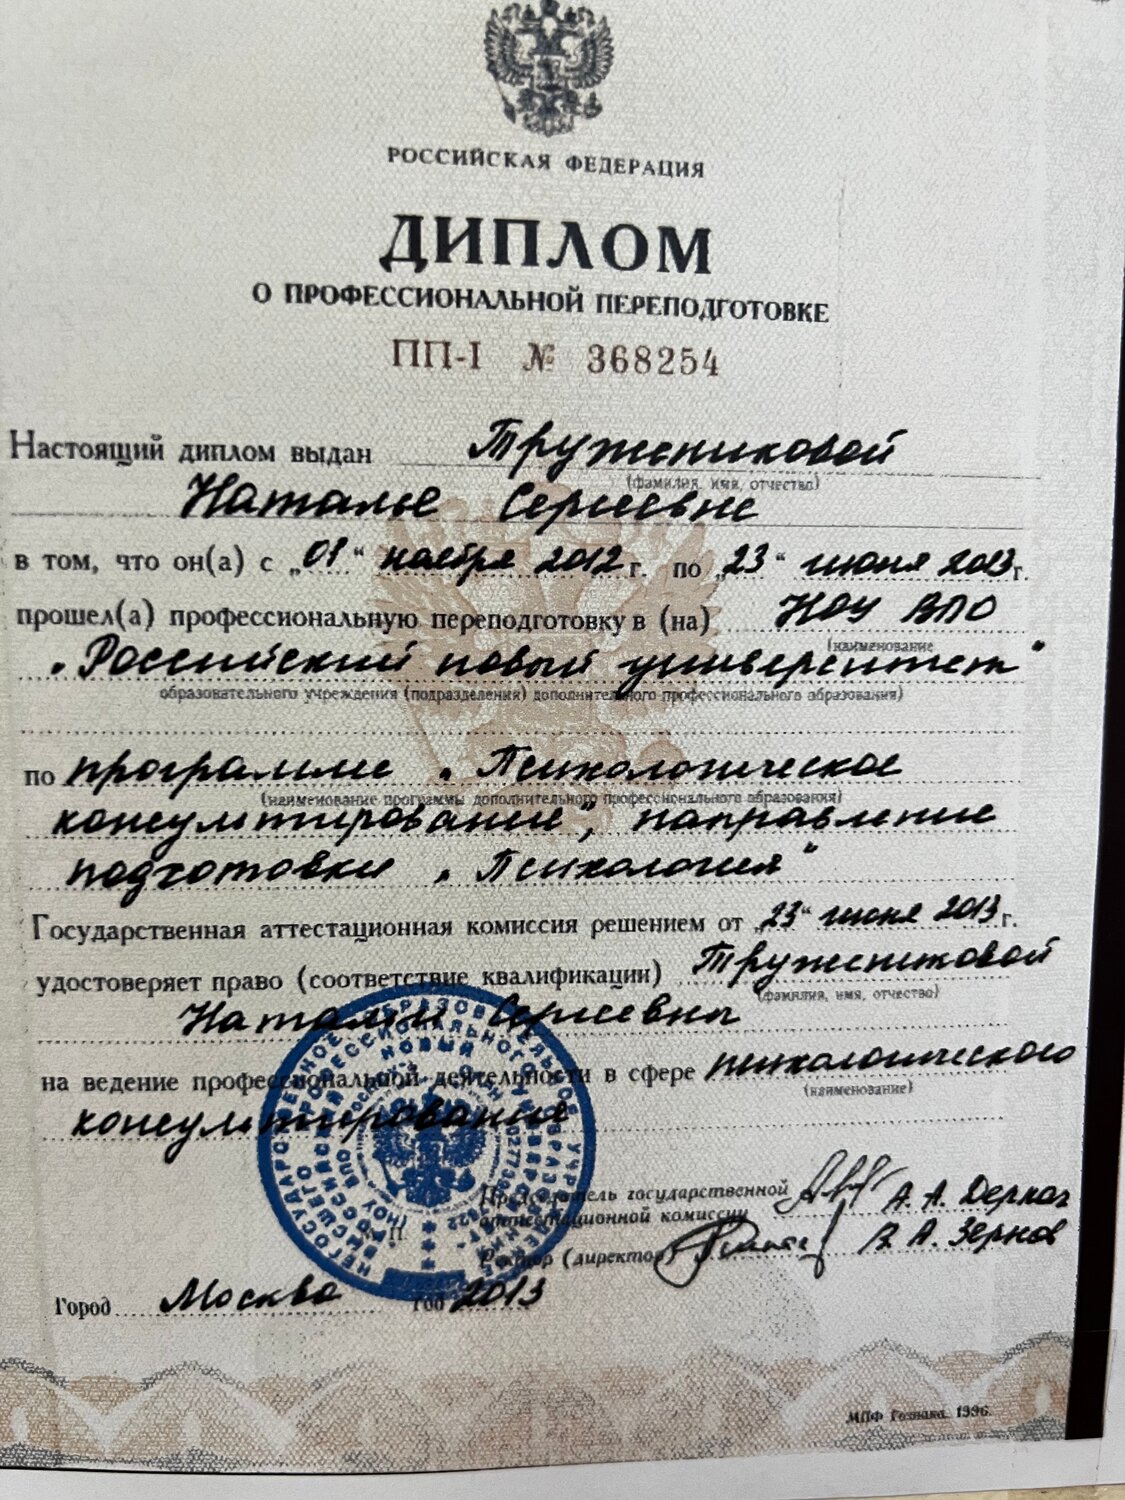 РОССИЙСКАЯ ФЕДЕРАЦИЯ
ДИПЛОМ
О ПРОФЕССИОНАЛЬНОЙ ПЕРЕПОДГОТОВКЕ
ПП-I № 368254
Настоящий диплом выдан Тружениковой
(фамилия, имя, отчество)
Наталье Сергеевне
в том, что он(а) с „01“ ноября 2012 г. по „23“ июня 2013 г.
прошел(а) профессиональную переподготовку в (на) НОУ ВПО
(наименование
„Российский новый университет“
образовательного учреждения (подразделения) дополнительного профессионального образования)
по программе „Психологическое
(наименование программы дополнительного профессионального образования)
консультирование“, направление
подготовки „Психология“
Государственная аттестационная комиссия решением от „23“ июня 2013 г.
удостоверяет право (соответствие квалификации) Тружениковой
(фамилия, имя, отчество)
Наталии Сергеевны
на ведение профессиональной деятельности в сфере психологического
(наименование)
консультирования
Председатель государственной
аттестационной комиссии А. А. Деркач
Ректор (директор) В. А. Зернов
М.П.
Город Москва год 2013
МПФ Гознака. 1996.